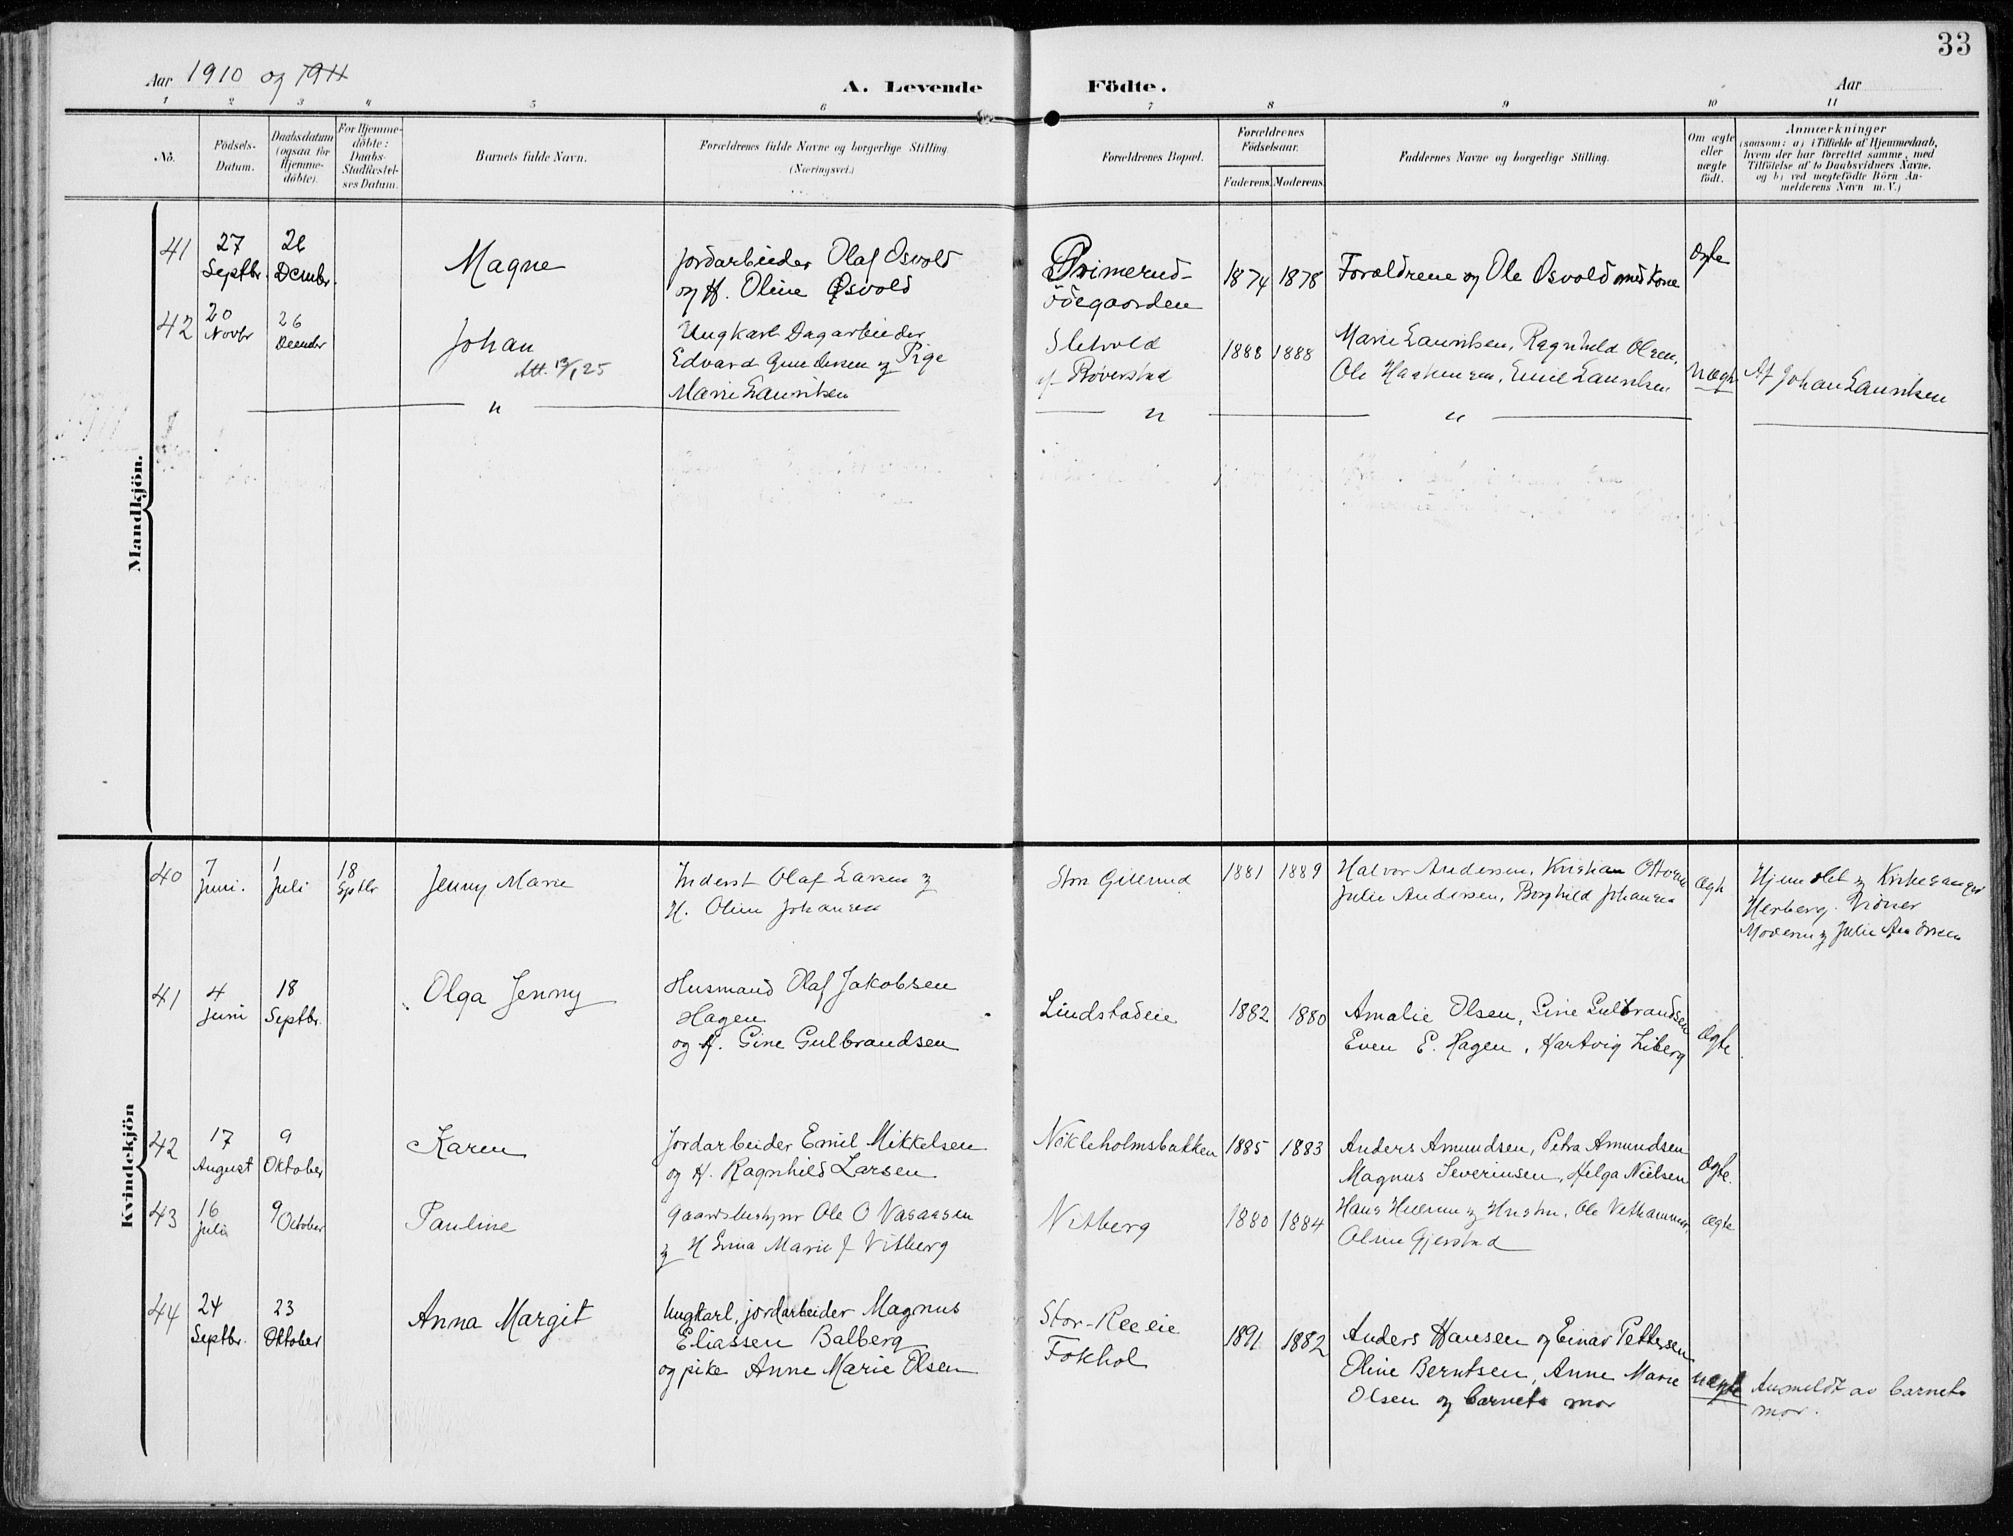 33
Aar 1910 og 1911
A. Levende Födte.
Aar
1 2 3 4 5 6 7 8 9 10 11
No.
Födsels-
Datum.
Daabsdatum
(ogsaa for
Hjemme-
döbte).
For Hjemme-
döbte:
Daabs-
Stadfæstel-
ses Datum.
Barnets fulde Navn.
Forældrenes fulde Navne og borgerlige Stilling
(Næringsvei.)
Forældrenes Bopæl.
Forældrenes
Födselsaar.
Faderens. Moderens.
Faddernes Navne og borgerlige Stilling.
Om ægte
eller
uægte
født.
Anmærkninger
(saasom: a) i Tilfælde af Hjemmedaab,
hvem der har forrettet samme, med
Tilföielse af to Daabsvidners Navne.
og b) ved uægtefödte Börn An-
melderens Navn m. V.)
Mandkjön.
41
27
Septbr.
26
Dcmbr.
Magne
Jordarbeider Olaf Osvold
og H. Oline Osvold
Grimerud-
1874 1878
Forældrene og Ole Osvold med Kone
Ægte
42
20
Novbr
26
Decmbr
Johan
Att. 13/1 25
Ungkarl Dagarbeider
Edvard Gundersen og Pige
Marie Lauritsen
Sletvold
u/ Røverstad
1888 1888
Marie Lauritsen, Ragnhild Olsen,
Ole Haakensen, Emil Lauritsen
Uægte
Af Johan Lauritsen
" " "
Kvindekjön
40
7
Juni.
1
Juli
18
Sptbr
Jenny Marie
Inderst Olaf Larsen og
H. Oline Johansen
Stor Gillerud
1881 1889
Halvor Andersen, Kristian
Julie Andersen, Borghild Johansen
Ægte
Hjemdøbt og Kirkesanger
Herberg. Vidner
Moderen og Julie Andersen
41
4
Juni
18
Septbr.
Olga Jenny
Husmand Olaf Jakobsen
Hagen
og H. Gine Gulbrandsen
Lindstadeie
1882 1880
Amalie Olsen, Gine Gulbrandsen
Even E. Hagen, Hartvig Liberg
Ægte
42
17
August
9
Oktober
Karen
Jordarbeider Emil Mikkelsen
og H. Ragnhild Larsen
Nökleholmsbakken
1885 1883
Anders Amundsen, Petra Amundsen
Magnus Severinsen, Helga Nielsen
Ægte.
43
16
Juli
9 October
Pauline
Gaardsbestyrer Ole O Vasaasen
og H Emma Marie J Vitberg
Vitberg
1880 1884
Hans og Hustru, Ole Vethammer,
Oline Gjerstad
ægte
44
24
Septbr.
23
Oktober
Anna Margit
Ungkarl, jordarbeider Magnus
Eliassen Balberg
og pike Anne Marie Olsen
Stor-Ree eie
Fokhol
1891 1882
Anders Hansen og Einar Pettersen
Oline Berntsen, Anne Marie
Olsen og barnets mor
uægte
Anmeldt av barnets
mor.